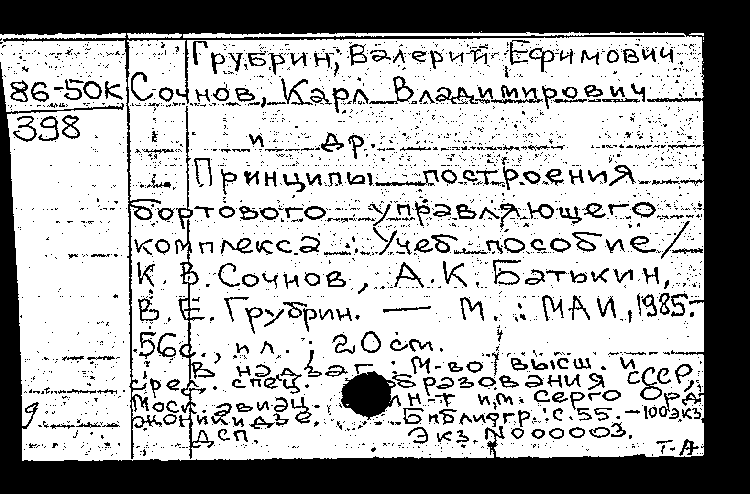 Грубрин, Валерий Ефимович
86-50к Сочнов, Карл Владимирович
398
и др.
Принципы построения
бортового управляющего
комплекса : Учеб. пособие /
К. В. Сочнов, А. К. Батькин,
В. Е. Грубрин. — М. : МАИ, 1985.-
56с., ил. ; 20 см.
В надзаг. : М-во высш. и
сред. спец. образования СССР,
Моск. авиац. ин-т им. Серго Орд
жоникидзе. Библиогр.: с. 55. — 100 экз.
дсп. Экз. N 000003.
д
Т-А